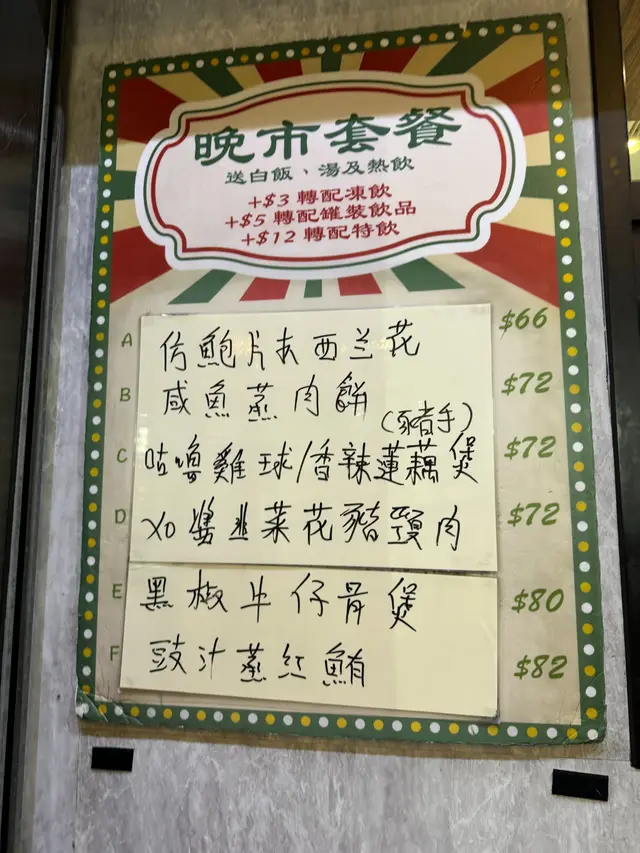 晚市套餐
送白飯、湯及熱飲
+$3 轉配凍飲
+$5 轉配罐裝飲品
+$12 轉配特飲
A 仿鮑片扒西兰花 $66
B 咸魚蒸肉餅 $72
(豬手)
C 咕嚕雞球/香辣蓮藕煲 $72
D XO醬韭菜花豬頸肉 $72
E 黑椒牛仔骨煲 $80
F 豉汁蒸红鮋 $82